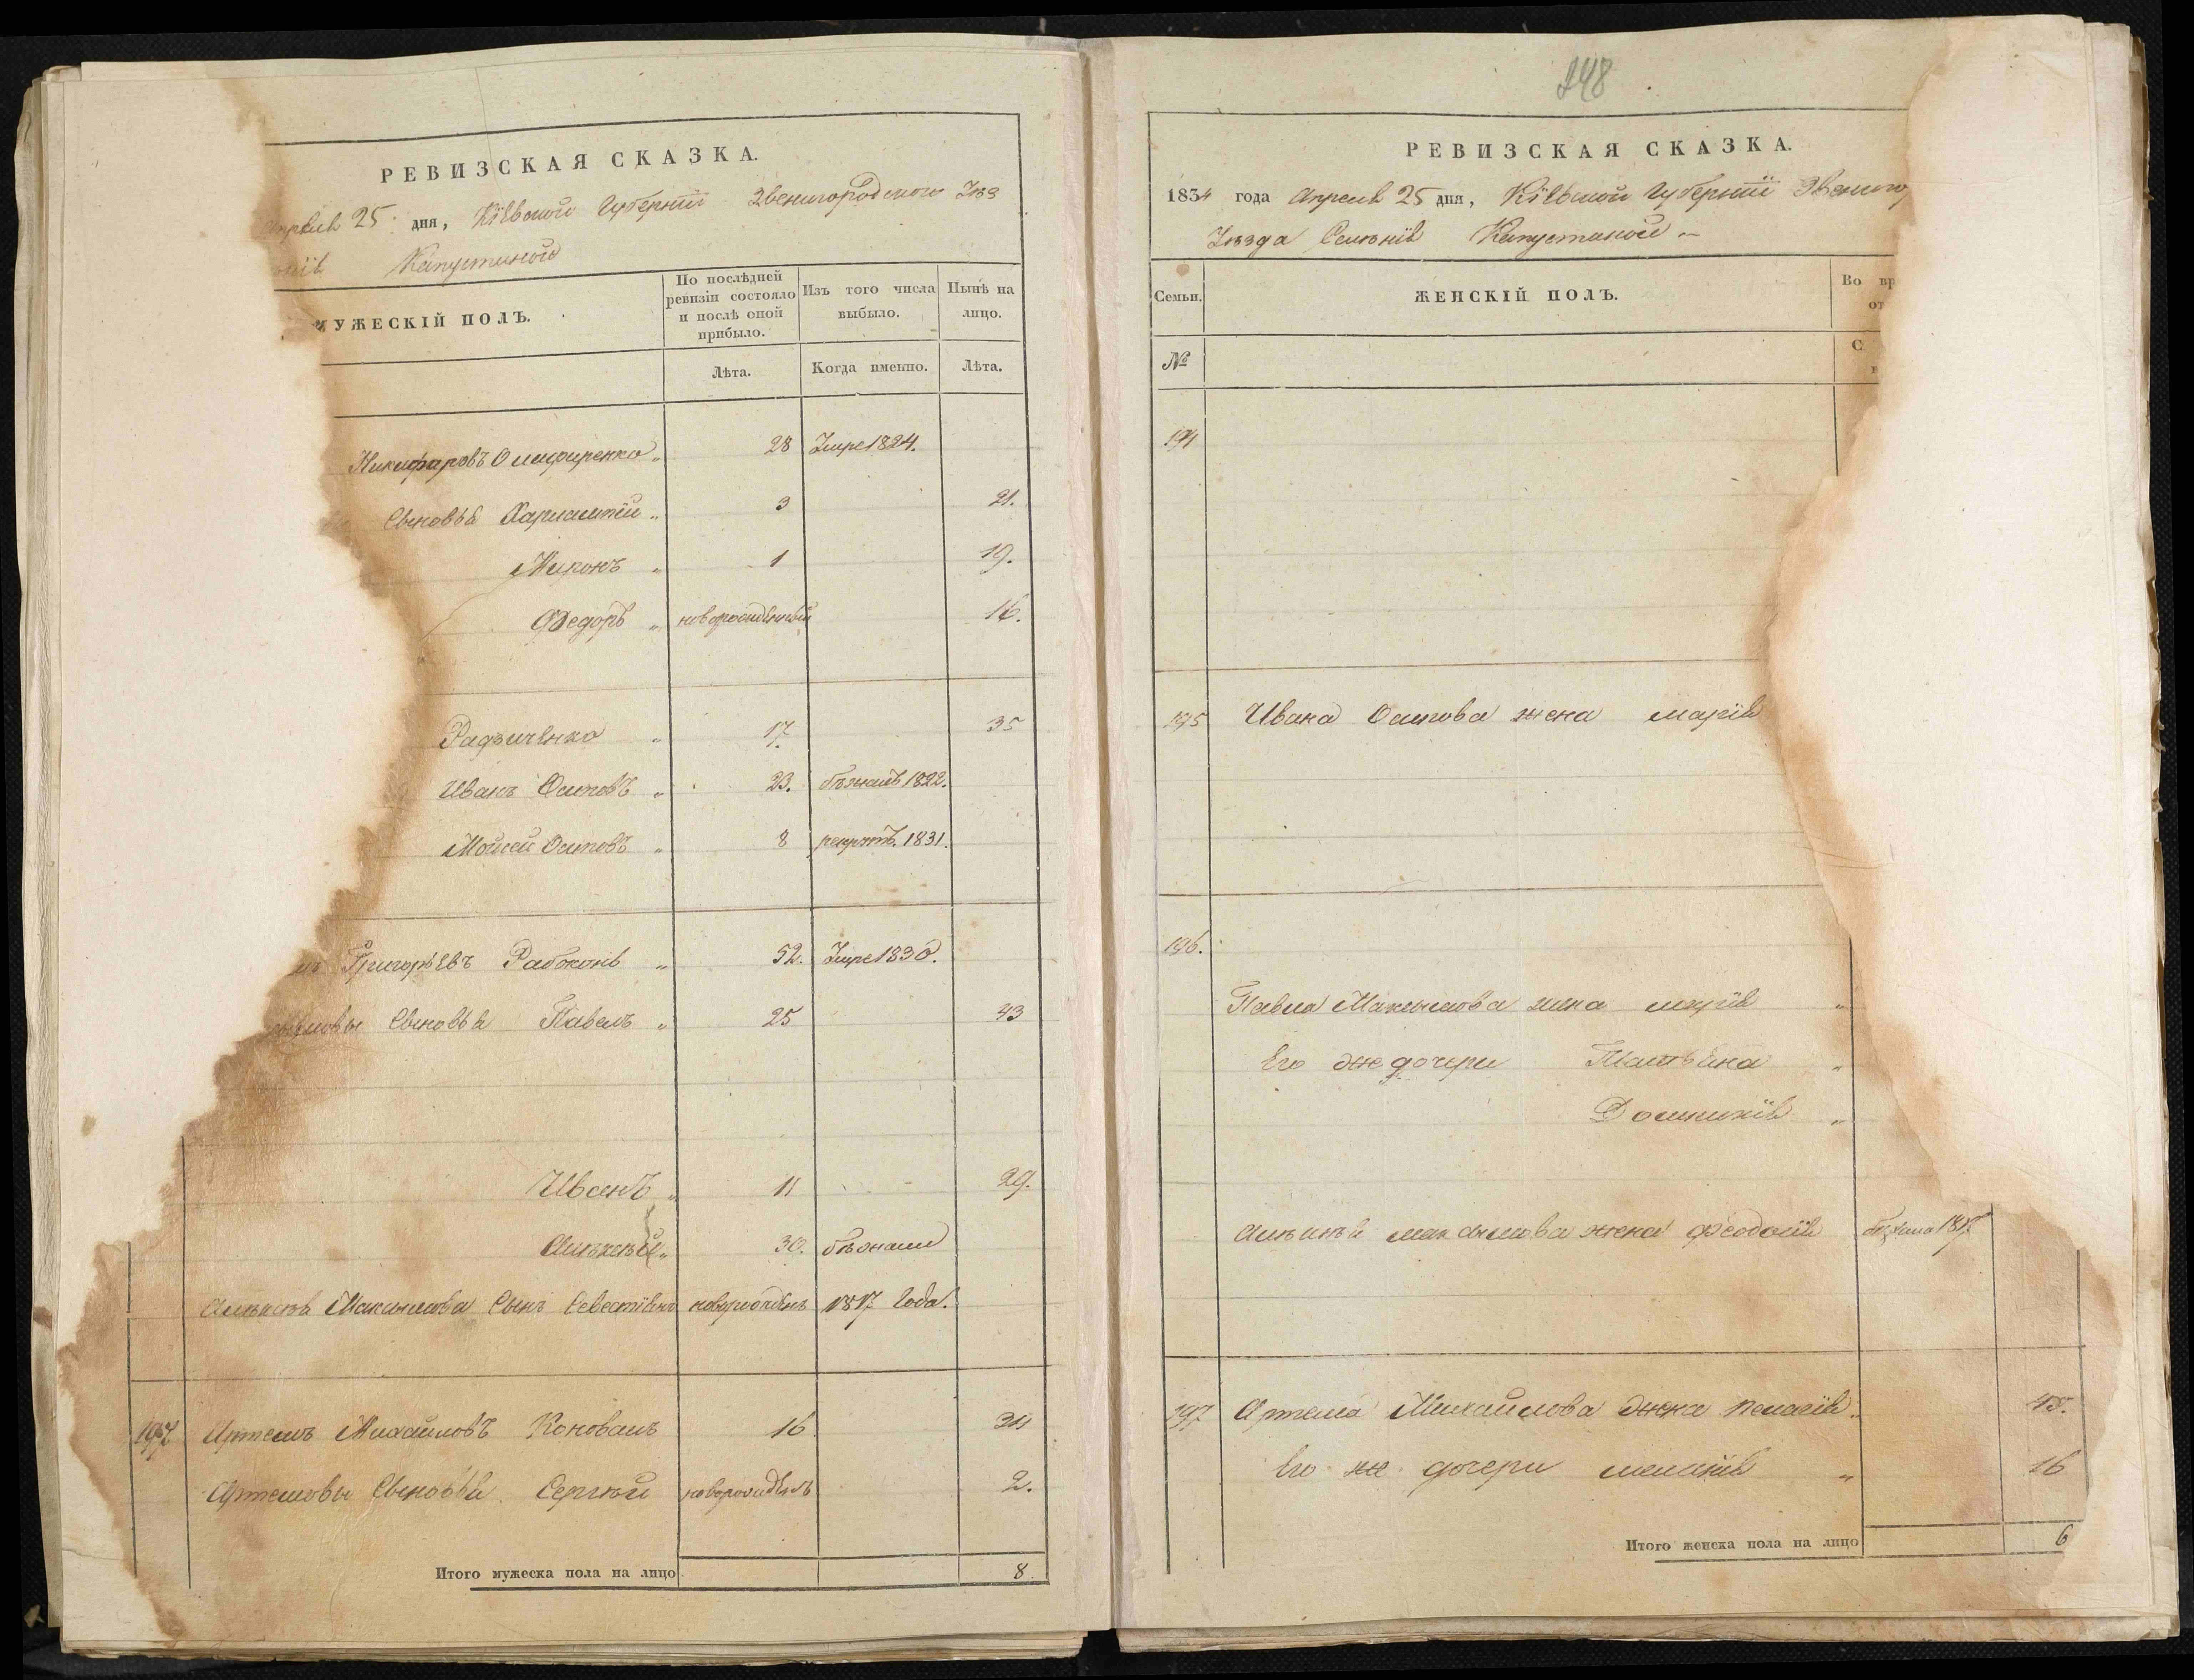 РЕВИЗСКАЯ СКАЗКА.
Апреля 25 дня, Кіевской Губерніи Звенигородского Уѣз
Капустиной
МУЖЕСКІЙ ПОЛЪ.
По послѣдней ревизіи состояло и послѣ оной прибыло.
Изъ того числа выбыло.
Нынѣ на лицо.
Лѣта.
Когда именно.
Лѣта.
Никифаровъ 28 Умре 1824.
Сыновья Харлампій 3 21.
Миронъ 1 19.
Федоръ новорожденный 16.
Радзиченко 17. 35
Иванъ Осиповъ 23. бѣжалъ 1822.
Мойсей Осиповъ 8 рекрутъ. 1831.
Григорьевъ Рабоконь 52. Умре 1830.
Сыновья Павелъ 25 43
Иванъ 11 29.
Алексѣй 30. бѣжали
Алексѣя Максимова Сынъ Севастіянъ новорожденъ 1817 Года.
197 Артемъ Михайловъ Коновалъ 16 34
Артемовы Сыновья Сергѣй новорожденъ 2.
Итого мужеска пола на лицо 8
248
РЕВИЗСКАЯ СКАЗКА.
1834 года Апреля 25 дня, Кіевской Губерніи Звениго
Уѣзда Селенія Капустиной
Семьи.
ЖЕНСКІЙ ПОЛЪ.
Во вр
от
№
194
195 Ивана Осипова жена марія
196.
Павла Максимова жена марія
Его же дочери Татьяна
Домникія
Алексѣя максимова жена феодосія бѣжала 1817
197 Артема Михайлова жена пелагія. 45.
Его же дочери меланія 16
Итого женска пола на лицо 6